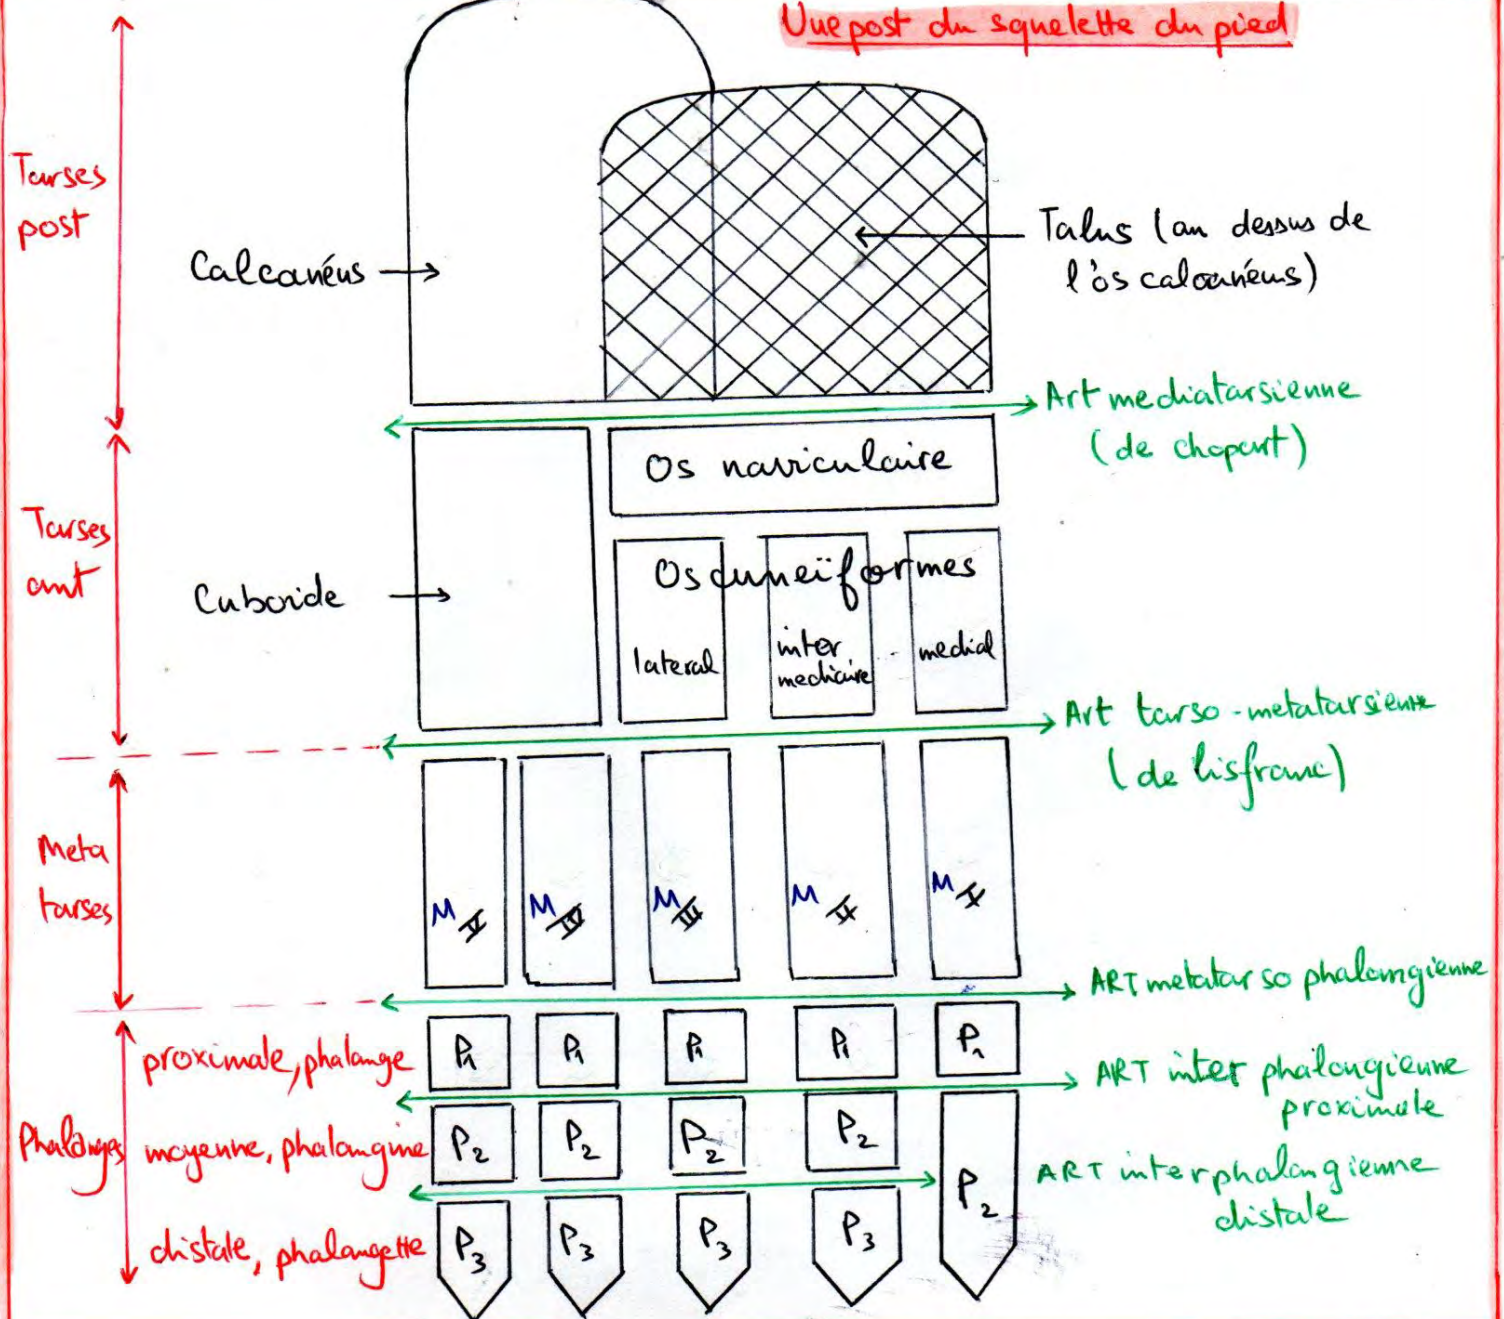 Vue post du squelette du pied
Tarses
post
Calcanéus
Talus (au dessus de
l'os calcanéus)
Art mediatarsienne
(de chopart)
Os naviculaire
Tarses
ant
Cuboïde
Os cuneïformes
lateral
inter
mediaire
medial
Art tarso-metatarsienne
(de lisfranc)
Meta
tarses
M V
M IV
M III
M II
M I
ART metatarso phalangienne
proximale, phalange
P1
P1
P1
P1
P1
ART inter phalangienne
proximale
Phalanges
moyenne, phalangine
P2
P2
P2
P2
P2
ART interphalangienne
distale
distale, phalangette
P3
P3
P3
P3